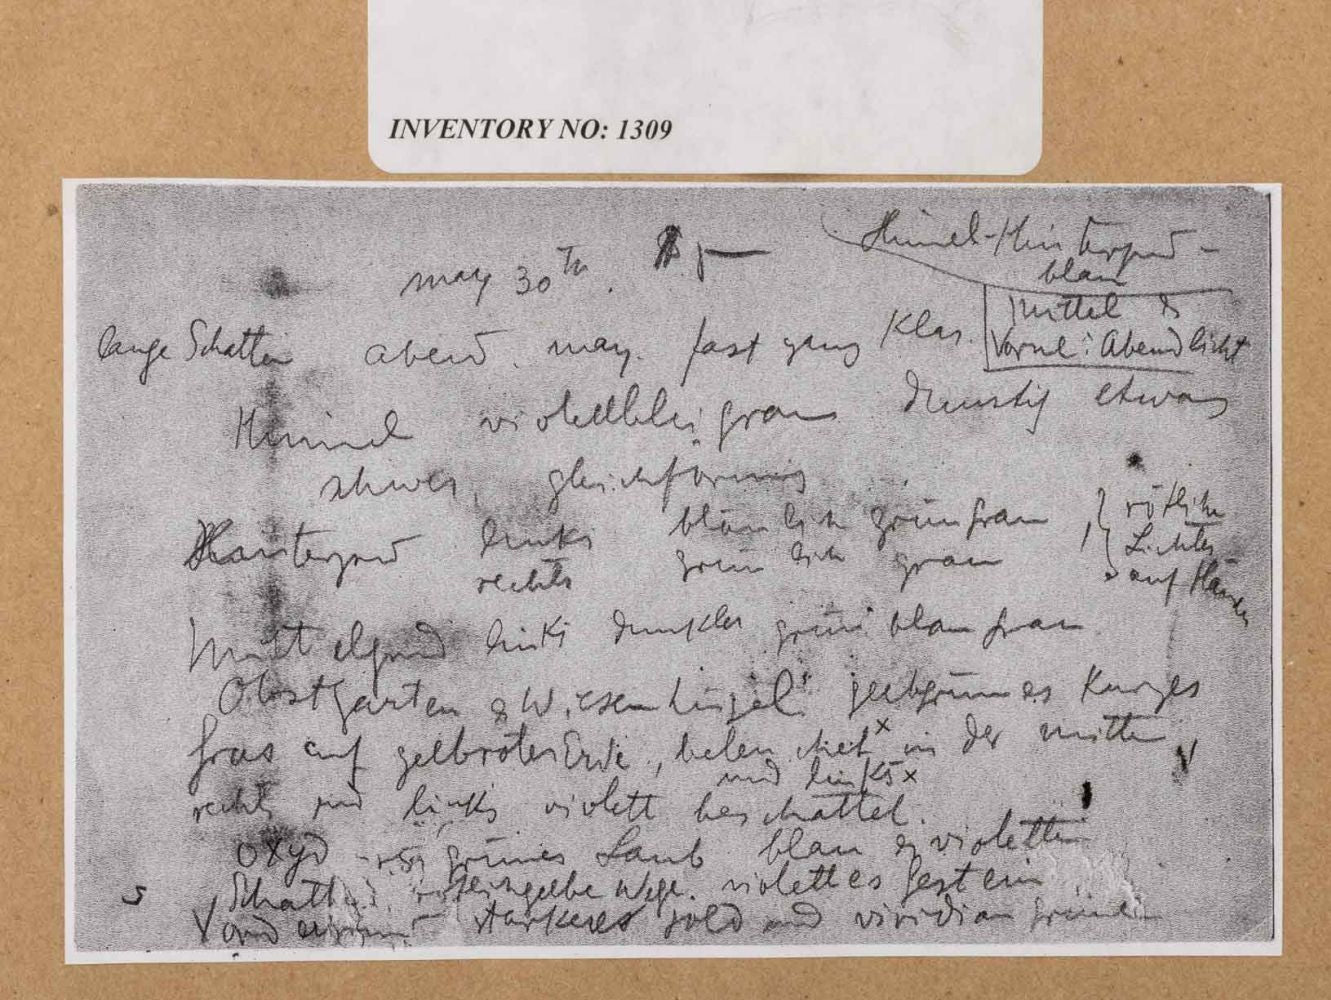 INVENTORY NO: 1309
Himmel-Hintergrund -
blau
may 30th. 5 —
Mittel &
Vorne: Abendlicht
lange Schatten abend. may. fast ganz Klar.
Himmel violettbleigrau dunstig etwas
schwer, gleichförmig
Hintergrund links bläulich grüngrau, rötliche
rechts grünlich grau Lichter
auf Häuser
Mittelgrund links dunkler grünblaugrau
Obstgarten & Wiesenhügel: gelbgrünes Kurzes
Gras auf gelbroter Erde, beleuchtet x in der mitte,
und links x
rechts und links violett beschattet.
oxyd grünes Laub blau & violette
Schatten rötlichgelbe Wege. violettes Gestein
5
Vordergrund starkeres gold und viridian grün